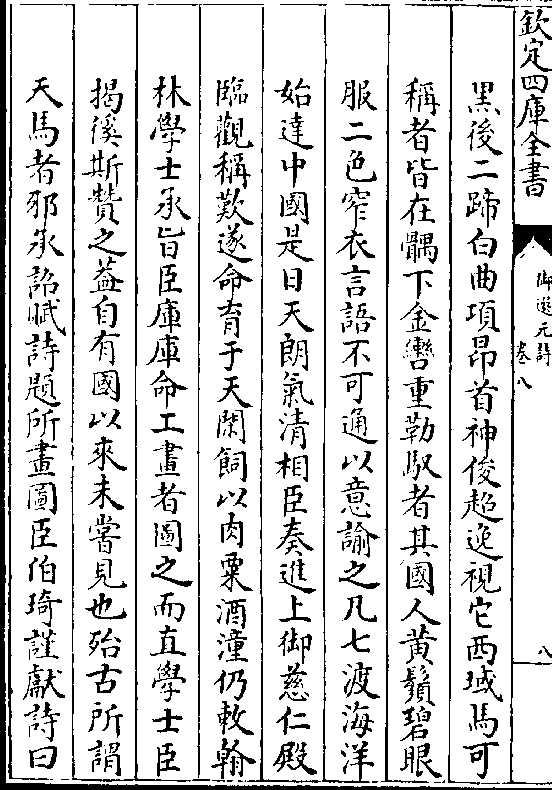 欽定四庫全書
御選元詩
卷八
八
黑後二蹄白曲項昂首神俊超逸視它西域馬可
稱者皆在髃下金轡重勒馭者其國人黃鬚碧眼
服二色窄衣言語不可通以意諭之凡七渡海洋
始達中國是日天朗氣清相臣奏進上御慈仁殿
臨觀稱歎遂命育于天閑飼以肉粟酒湩仍敕翰
林學士承旨臣庫庫命工畫者圖之而直學士臣
揭徯斯贊之葢自有國以來未嘗見也殆古所謂
天馬者邪承詔賦詩題所畫圖臣伯琦謹獻詩曰